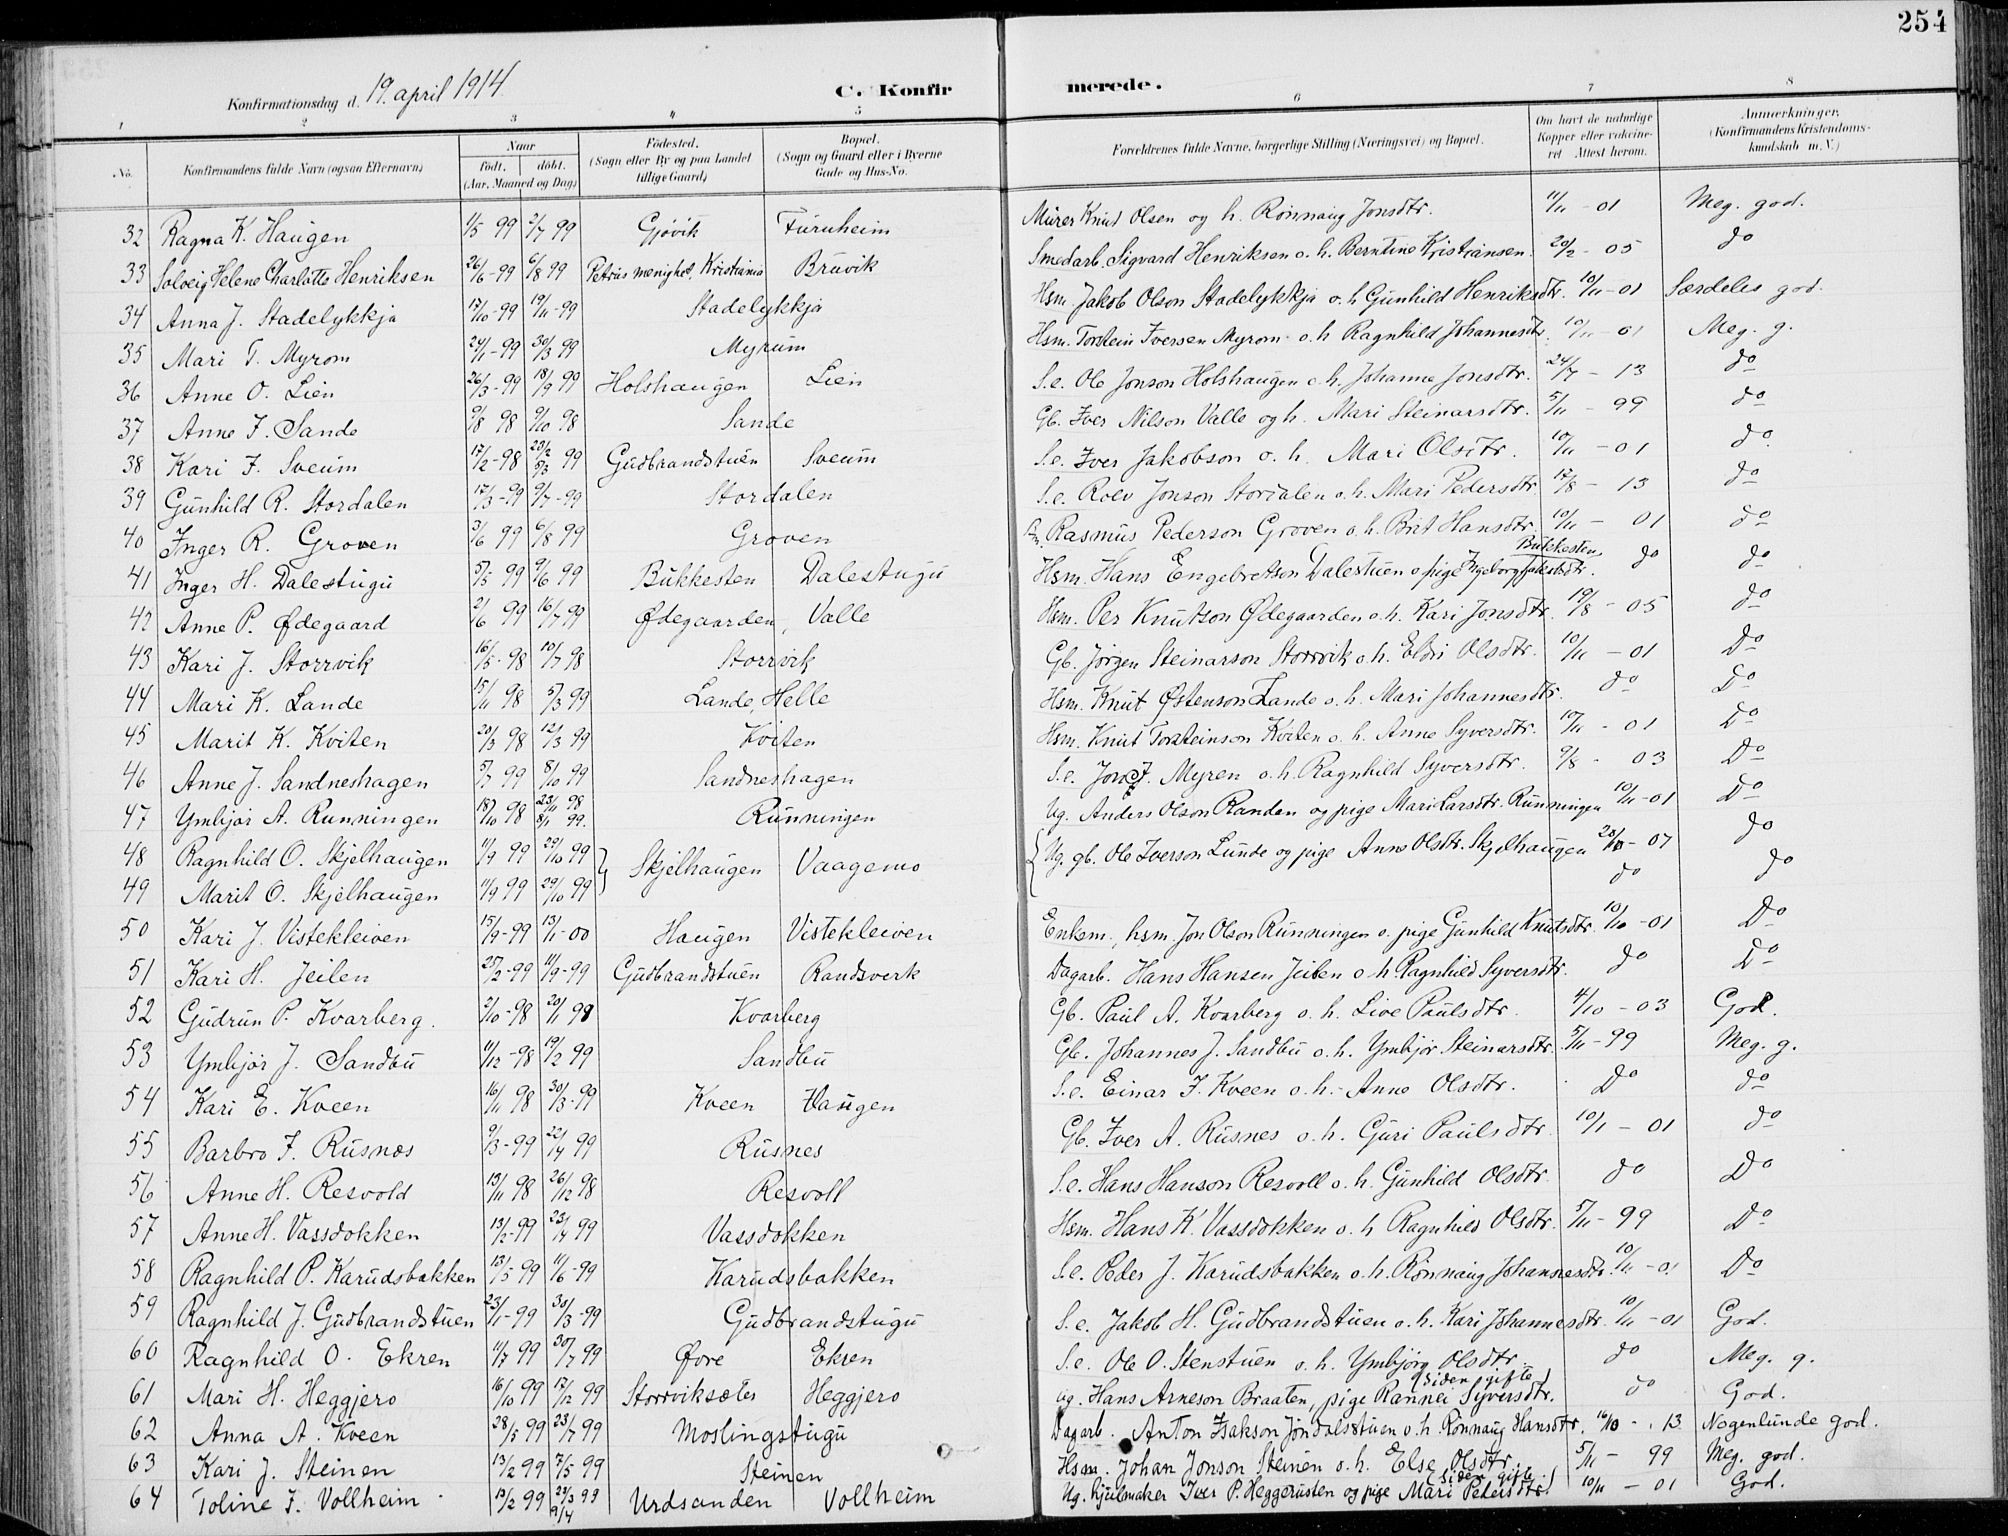 254
Konfirmationsdag d. 19. april 1914
C. Konfirmerede.
1 2 3 4 5 6 7 8
No. | Konfirmandens fulde Navn (ogsaa Efternavn) | Naar født. døbt. (Aar, Maaned og Dag) | Fødested. (Sogn eller By og paa Landet tillige Gaard) | Bopæl. (Sogn og Gaard eller i Byerne Gade og Hus-No. | Forældrenes fulde Navne, borgerlige Stilling (Næringsvei) og Bopæl. | Om havt de naturlige Kopper eller vakcineret. Attest herom. | Anmærkninger. (Konfirmandens Kristendomskundskab m. V.)
32 Ragna K. Haugen 1/5 99 2/7 99 Gjøvik Furuheim Murer Knud Olsen og h. Rønnaug Jonsdtr. 11/11 - 01 Meg. god.
33 Solveig Helene Charlotte Henriksen 26/6-99 6/8 99 Petrus menighet, Kristiania Bruvik Smedarb. Sigvard Henriksen o. h. Berntine Kristiansen. 20/2 - 05 do
34 Anna J. Stadelykkja 17/10-99 19/11-99 Stadelykkja Hsm. Jakob Olson Stadelykkja o. h. Gunhild Henriksdtr. 10/11-01 Særdeles god.
35 Mari T. Myrom 24/1-99 30/3 99 Myrum Hsm. Torstein Iversen Myrom o. h. Ragnhild Johannesdtr. 10/11-01 Meg. g.
36 Anne O. Lien 26/3-99 18/9 99 Holshaugen Lien S.e. Ole Jonson Holshaugen o. h. Johanne Jonsdtr. 24/7 - 13 do
37 Anne I. Sande 9/8 98 9/10 98 Sande Gb. Iver Nilson Valle og h. Mari Steinarsdtr. 5/11 - 99 do
38 Kari I. Sveum 17/2-98 23/2 5/3 99 Gudbrandstuen Sveum S.e. Iver Jakobson o. h. Mari Olsdtr. 10/11 - 01 do
39 Gunhild R. Stordalen 17/3-99 9/7-99 Stordalen S.e. Rolv Jonson Stordalen o. h. Mari Pedersdtr. 12/8 - 13 do
40 Inger R. Groven 3/6 99 6/8 99 Groven Rasmus Pederson Groven o. h. Brit Hansdtr. 10/11 - 01 do
41 Inger H. Dalestugu 5/5 99 9/6 99 Bukkesten Dalestugu Hsm. Hans Engebretson Dalestuen o pige Ingeborg Jakobsdtr. Bukkesten do do
42 Anne P. Ødegaard 2/6 99 16/7 99 Ødegaarden, Valle Hsm. Per Knutson Ødegaarden o. h. Kari Jonsdtr. 19/8 - 05 do
43 Kari J. Storrvik 16/5-98 10/7 98 Storrvik Gb. Jørgen Steinarson Storrvik o. h. Eldri Olsdtr. 10/11 - 01 Do
44 Mari K. Lande 15/11 98 5/3 99 Lande, Helle Hsm. Knut Østenson Lande o. h. Mari Johannesdtr. do Do
45 Marit K. Kviten 20/3 98 12/3 99 Kviten Hsm. Knut Torsteinson Kviten o. h. Anne Syversdtr. 10/11 - 01 Do
46 Anne J. Sandneshagen 5/7 99 8/10 99 Sandneshagen S.e. Jon J. Myren o. h. Ragnhild Syversdtr. 9/8 - 03 Do
47 Ymbjør A. Runningen 18/10 98 23/11 98 8/1 99. Runningen Ug. Anders Olson Randen og pige Mari Larsdtr. Runningen 10/11-01 Do
48 Ragnhild O. Skjelhaugen 11/9 99 29/10 99 Skjelhaugen Vaagemo Ug. gb. Ole Iverson Lunde og pige Anne Olsdtr. Skjelhaugen 20/10-07 do
49 Marit O. Skjelhaugen 11/9 99 29/10 99 do do
50 Kari J. Vistekleiven 15/9-99 13/1-00 Haugen Vistekleiven Enkem., hsm. Jon Olson Runningen o. pige Gunhild Knutsdtr. 10/10-01 Do
51 Kari H. Jeilen 25/2-99 11/9-99 Gudbrandstuen Randsverk Dagarb. Hans Hansen Jeilen o. h. Ragnhild Syversdtr. do Do
52 Gudrun P. Kvarberg. 2/10-98 20/11 98 Kvarberg Gb. Paul A. Kvarberg o. h. Live Paulsdtr. 4/10 - 03 God.
53 Ymbjør J. Sandbu 11/12-98 19/2 99 Sandbu Gb. Johannes J. Sandbu o. h. Ymbjør Steinarsdtr. 5/11-99 Meg. g.
54 Kari E. Kveen 16/11 98 30/3-99 Kveen Haugen S.e. Einar I. Kveen o. h. Anne Olsdtr. Do do
55 Barbro I. Rusnes 9/3-99 22/4 99 Rusnes Gb. Iver A. Rusnes o. h. Guri Paulsdtr. 10/1 - 01 do
56 Anne H. Resvold 13/11 98 26/12 98 Resvoll S.e. Hans Hanson Resvoll o. h. Gunhild Olsdtr. do Do
57 Anne H. Vassdokken 13/2-99 23/4 99 Vassdokken Hsm. Hans K. Vassdokken o. h. Ragnhild Olsdtr. 5/11 - 99 Do
58 Ragnhild P. Karudsbakken 13/5 99 11/6-99 Karudsbakken S.e. Peder J. Karudsbakken o. h. Rønnaug Johannesdtr. 10/11-01 Do
59 Ragnhild J. Gudbrandstuen 23/1-99 30/3-99 Gudbrandstugu S.e. Jakob H. Gudbrandstuen o. h. Kari Johannesdtr. 10/11 - 01 God.
60 Ragnhild O. Ekren 11/7 99 30/7 99 Øvre Ekren S.e. Ole O. Stenstuen o. h. Ymbjørg Olsdtr. do Meg. g.
61 Mari H. Heggjero 16/10 99 17/12 99 Storrviksæter Heggjero ug. Hans Arneson Braaten, pige Rannei Syversdtr. (siden gifte) do God.
62 Anna A. Kveen 28/5 99 23/7 99 Moslingstugu Dagarb. Anton Isakson Jøndalsstuen o. h. Rønnaug Hansdtr. 16/10 - 13 Nogenlunde god.
63 Kari J. Steinen 13/2 99 7/5 99 Steinen Hsm. Johan Jonson Steinen o. h. Else Olsdtr. 5/11 - 99 Meg. god.
64 Toline I. Vollheim 13/2 99 23/3 99 9/4 Urdsanden Vollheim Ug. hjulmaker Iver P. Heggerusten og pige Mari Pedersdtr. (siden gifte) 10/11 - 01 God.